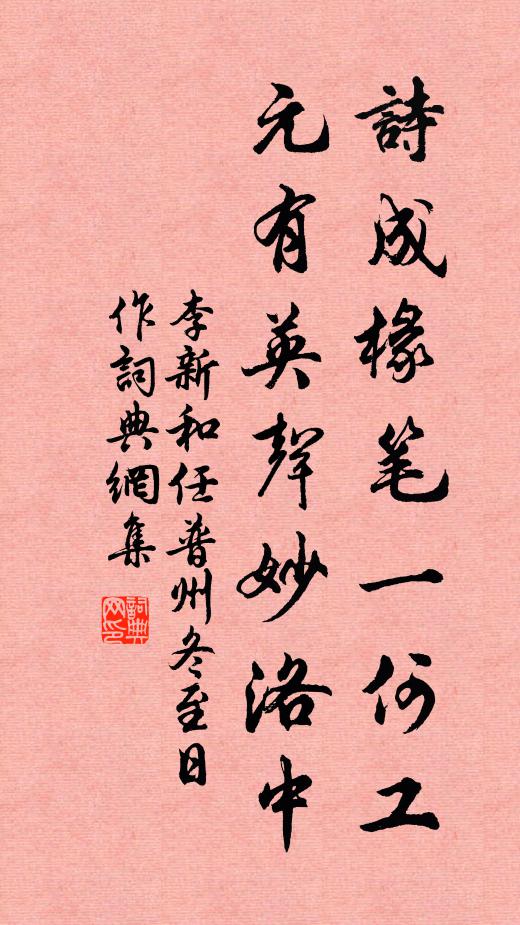 詩成椽笔一何工
元有英聲妙洛中
李新和任普州冬至日
作詞典網集
詞典
网印